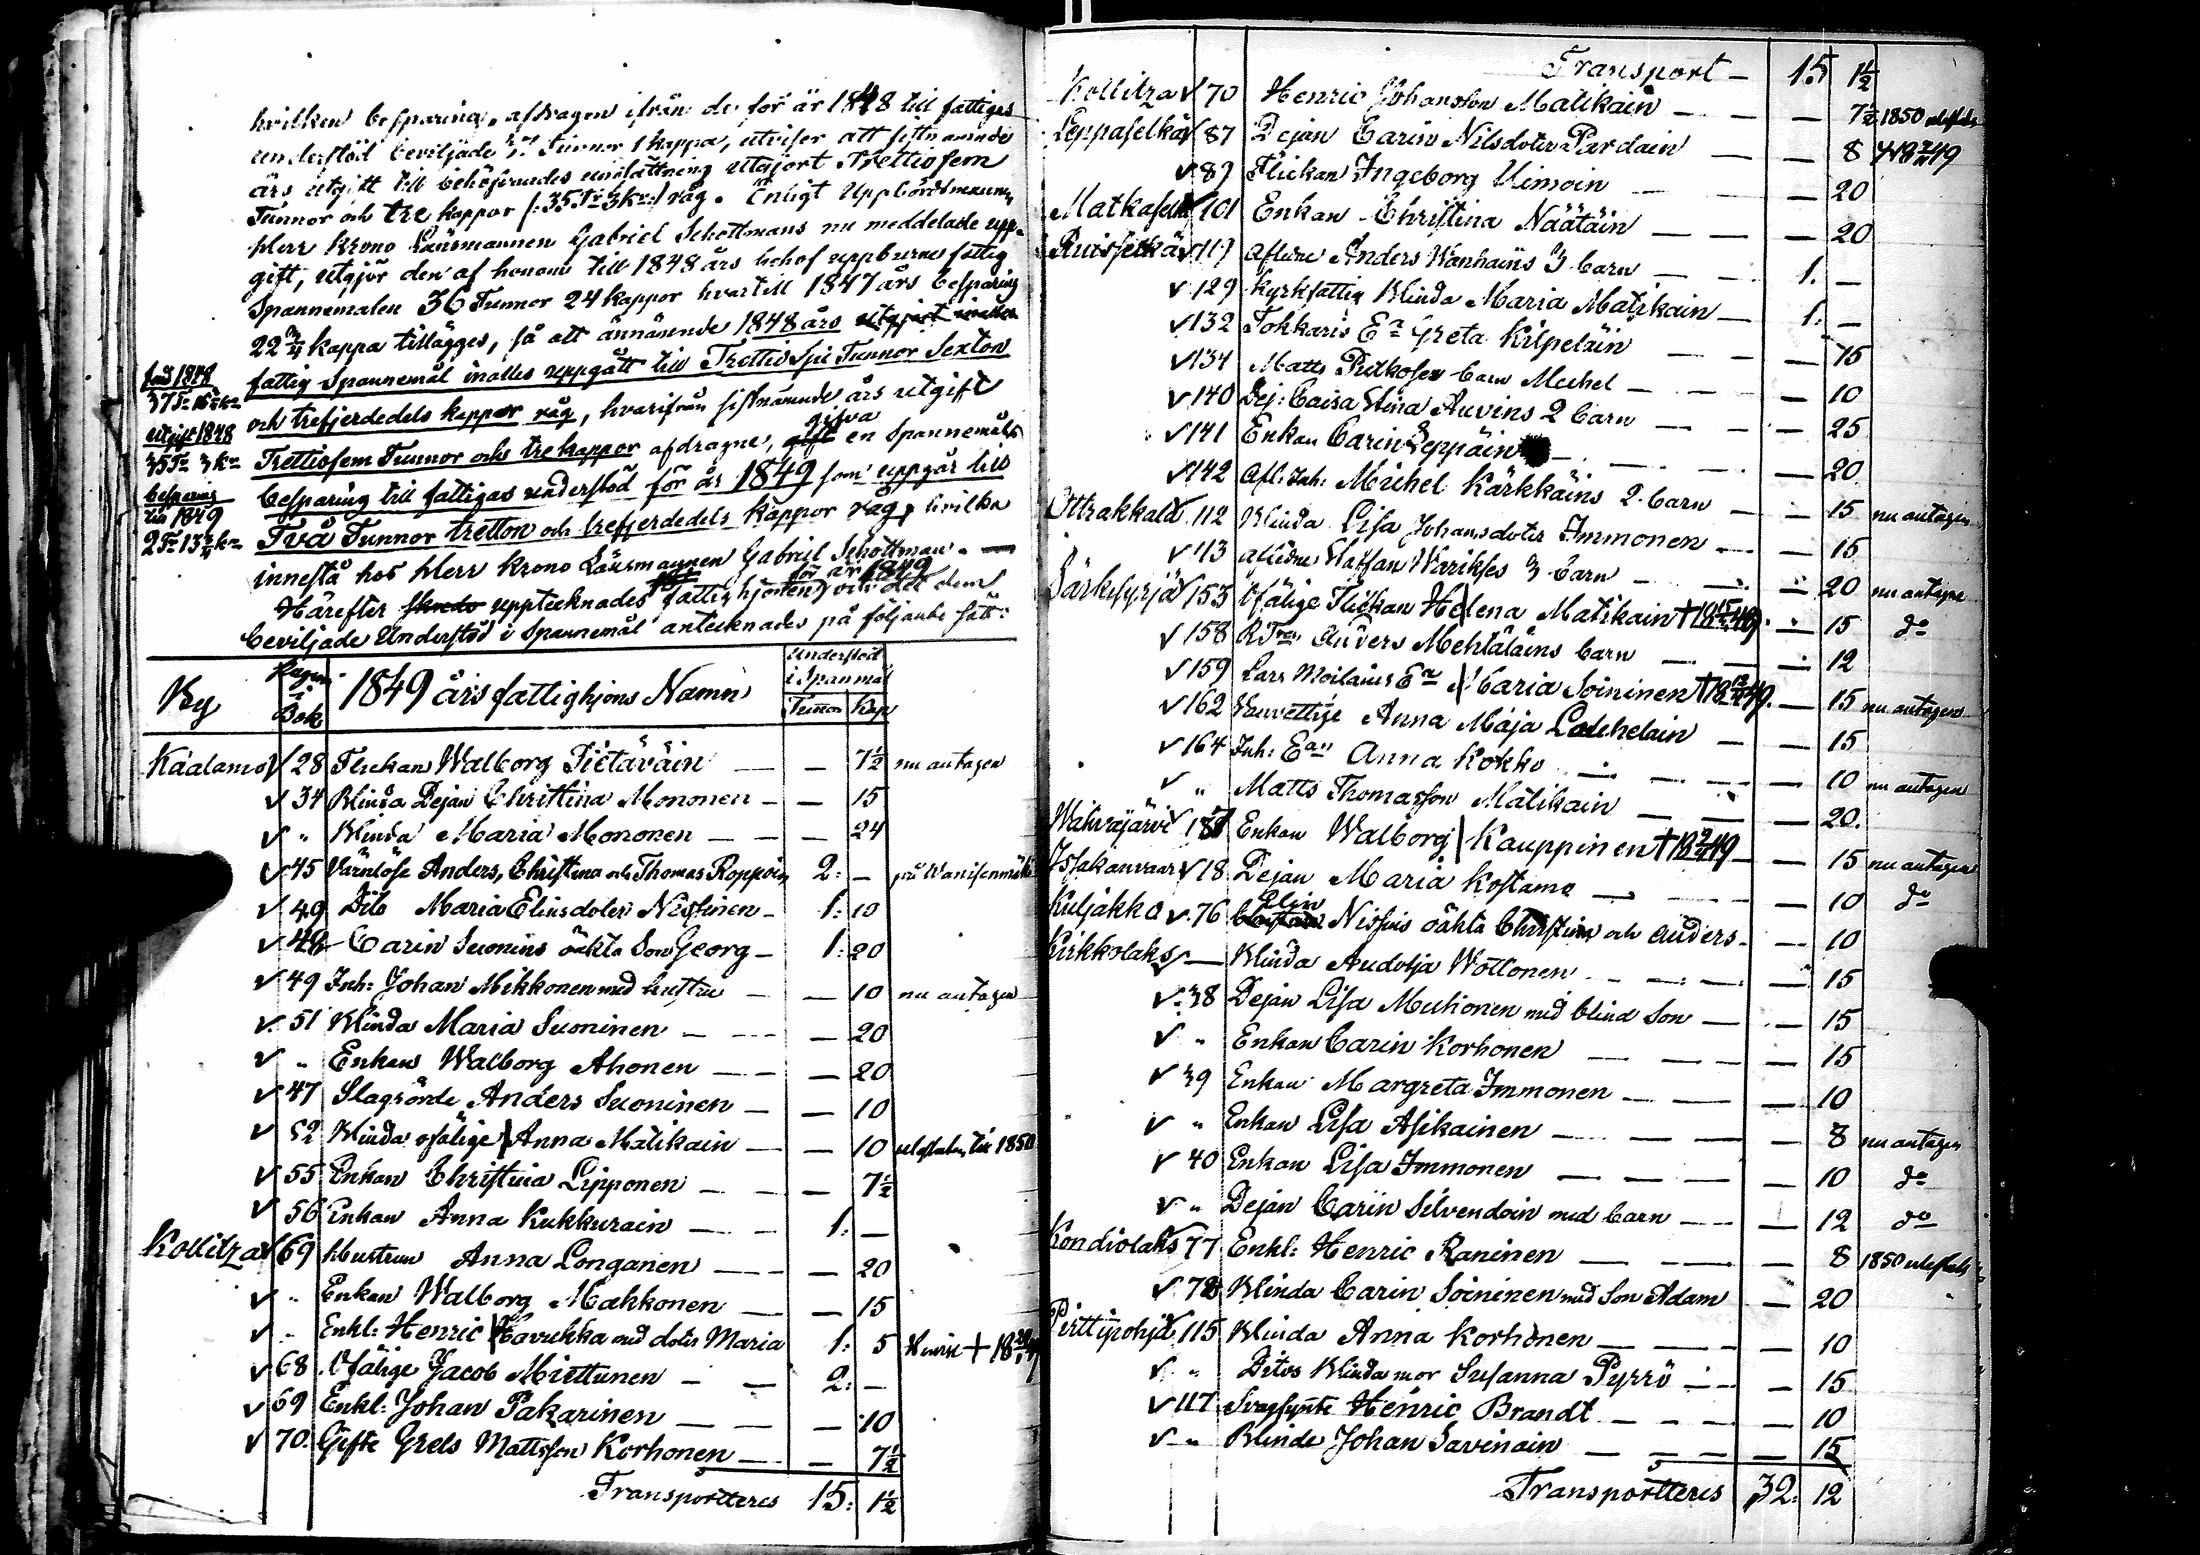 hvilken besparing, afdragen ifrån de för år 1848 till fattiges
understöd beviljade Tunnor 1 kappa, utviser att sistnämnde
års utgift till behöfvandes undsättning utgjort Trettiofem
Tunnor och tre kappor (: 35 Tr 3 kr :) råg. Enligt Uppbördsmannen
Herr Krono Länsmannen Gabriel Schottmans nu meddelade upp-
gift, utgjör den af honom till 1848 års behof uppburne fattig
Spannemålen 36 Tunnor 24 kappor hvartill 1847 års besparing
22 3/4 kappa tillägges, så att ännämnde 1848 års utgjort
fattig Spannemål inalles uppgått till Trettiosju Tunnor Sexton
och trefjerdedels kappor råg, hvarifrån sistnämnde års utgift
Trettiofem Tunnor och tre kappor afdragne, gifva en Spannemåls
besparing till fattigas understöd för år 1849 som uppgår till
Två Tunnor tretton och trefjerdedels kappor råg, hvilka
innestå hos Herr Krono Länsmannen Gabriel Schottman. —
Härefter upptecknades fattighjonen för år 1849 och det dem
beviljade Understöd i Spannemål antecknades på följande sätt:
1848
37 Tr 16 3/4 kr
utgift 1848
35 Tr 3 kr
besparing
till 1849
2 Tr 13 3/4 kr
By | Pagina i Bok | 1849 års fattighjons Namn | Understöd i Spanmål
Tunnor | Kap
Kaalamo 28 Flickan Walborg Tietäväin — — 7 1/2 nu antagen
34 Blinda Pejan Christina Mononen — — 15
" Blinda Maria Mononen — — 24
45 Värnlöse Anders, Christina och Thomas Roppoin 2: —
49 Dito Maria Eliusdoter Nissinen — 1: 10
49 Carin Suonins oäkta Son Georg — 1: 20
49 Inh: Johan Mikkonen med hustru — — 10 nu antagen
51 Blinda Maria Suoninen — — 20
" Enkan Walborg Ahonen — — 20
47 Slagrörde Anders Suoninen — — 10
52 Blinda ofälige Anna Matikain — — 10 till 1850
55 Enkan Christina Lipponen — — 7 1/2
56 Enkan Anna Kukkurain — 1: —
Kollitza 69 Hustrun Anna Longanen — — 20
" Enkan Walborg Makkonen — — 15
" Enkl: Henric Havukka med doter Maria 1: 5
68 Ofälige Jacob Miettunen — 2: —
69 Enkl: Johan Pakarinen — — 10
70. Gifte Grels Mattsson Korhonen — — 7 1/2
Transporteres 15: 1 1/2
Transport — 15 1 1/2
Kollitza 70 Henric Johansson Matikain — — 7 1/2 1850
Leppäselkä 87 Pejan Carin Nilsdoter Pardain — — 8
89 Flickan Ingeborg Uimoin — — 20
Matkaselkä 101 Enkan Christina Näätäin — — 20
Ruisselkä 119 Aflidne Anders Wanhains 3 barn — 1. —
129 Kyrkfattig Blinda Maria Matikain — 1: —
132 Tokkaris Ea Greta Kilpeläin — — 15
134 Matts Putkoses barn Michel — — 10
140 Pej: Caisa Stina Auvins 2 barn — — 25
141 Enkan Carin Leppäin — — 20
142 Afl: Inh: Michel Kärkkäins 2 barn — — 15 nu antagen
Ottrakkala 112 Blinda Lisa Johansdoter Immonen — — 15
113 aflidne Staffan Warikses 3 barn — — 20 nu antagne
Särkisyrjä 153 Ofälige Flickan Helena Matikain — 15 do
158 Auvers Mehtäläins barn — — 12
159 Lars Moilains Ea Maria Soininen — 15 nu antagen
162 Vanvettige Anna Maja Loukelain — — 15
164 Inh: Ean Anna Kokko — — 10 nu antagen
" Matts Thomasson Matikain — — 20.
Wahvajärvi Enkan Walborg Kauppinen — 15 nu antagen
Issakanvaar 18 Pejan Maria Kostamo — — 10 do
Kuljakko 76 Elin Nissins oäkta Christina och Anders — — 10
Kirkkolaks — Blinda Audotja Wottonen — — 15
38 Pejan Lisa Mutionen med blind Son — — 15
" Enkan Carin Korhonen — — 15
39 Enkan Margreta Immonen — — 10
" Enkan Lisa Asikainen — — 8 nu antagen
40 Enkan Lisa Immonen — — 10 do
" Pejan Carin Silvendoin med barn — — 12 do
Kondiolaks 77 Enkl: Henric Raninen — — 8 1850
78 Blinda Carin Soininen med Son Adam — 20
Pirttipohja 115 Blinda Anna Korhonen — — 10
" Ditos Blinda mor Susanna Pyrrö — — 15
117 Svagsynte Henric Brandt — — 10
" Blinde Johan Savinain — — 15
Transporteres 32: 12